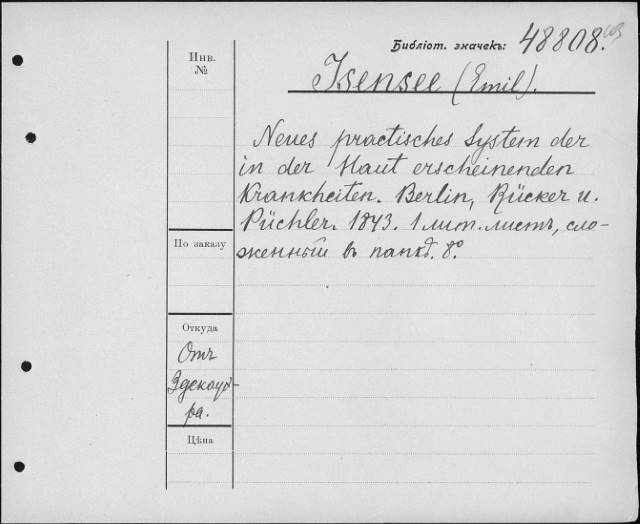 Библіот. значекъ: 48808.
Инв.
№
Isensee (Emil).
Neues practisches System der
in der Haut erscheinenden
Krankheiten. Berlin, Rücker u.
Püchler. 1843. 1 лит. листъ, сло-
женный въ папкѣ. 8º.
По заказу
Откуда
Отъ
Эдекауэ-
ра.
Цѣна